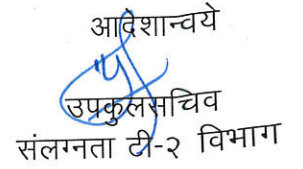 आदेशान्वये
उपकुलसचिव
संलग्नता टी-२ विभाग